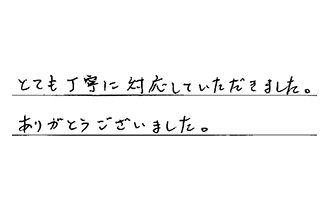 とても丁寧に対応していただきました。
ありがとうございました。